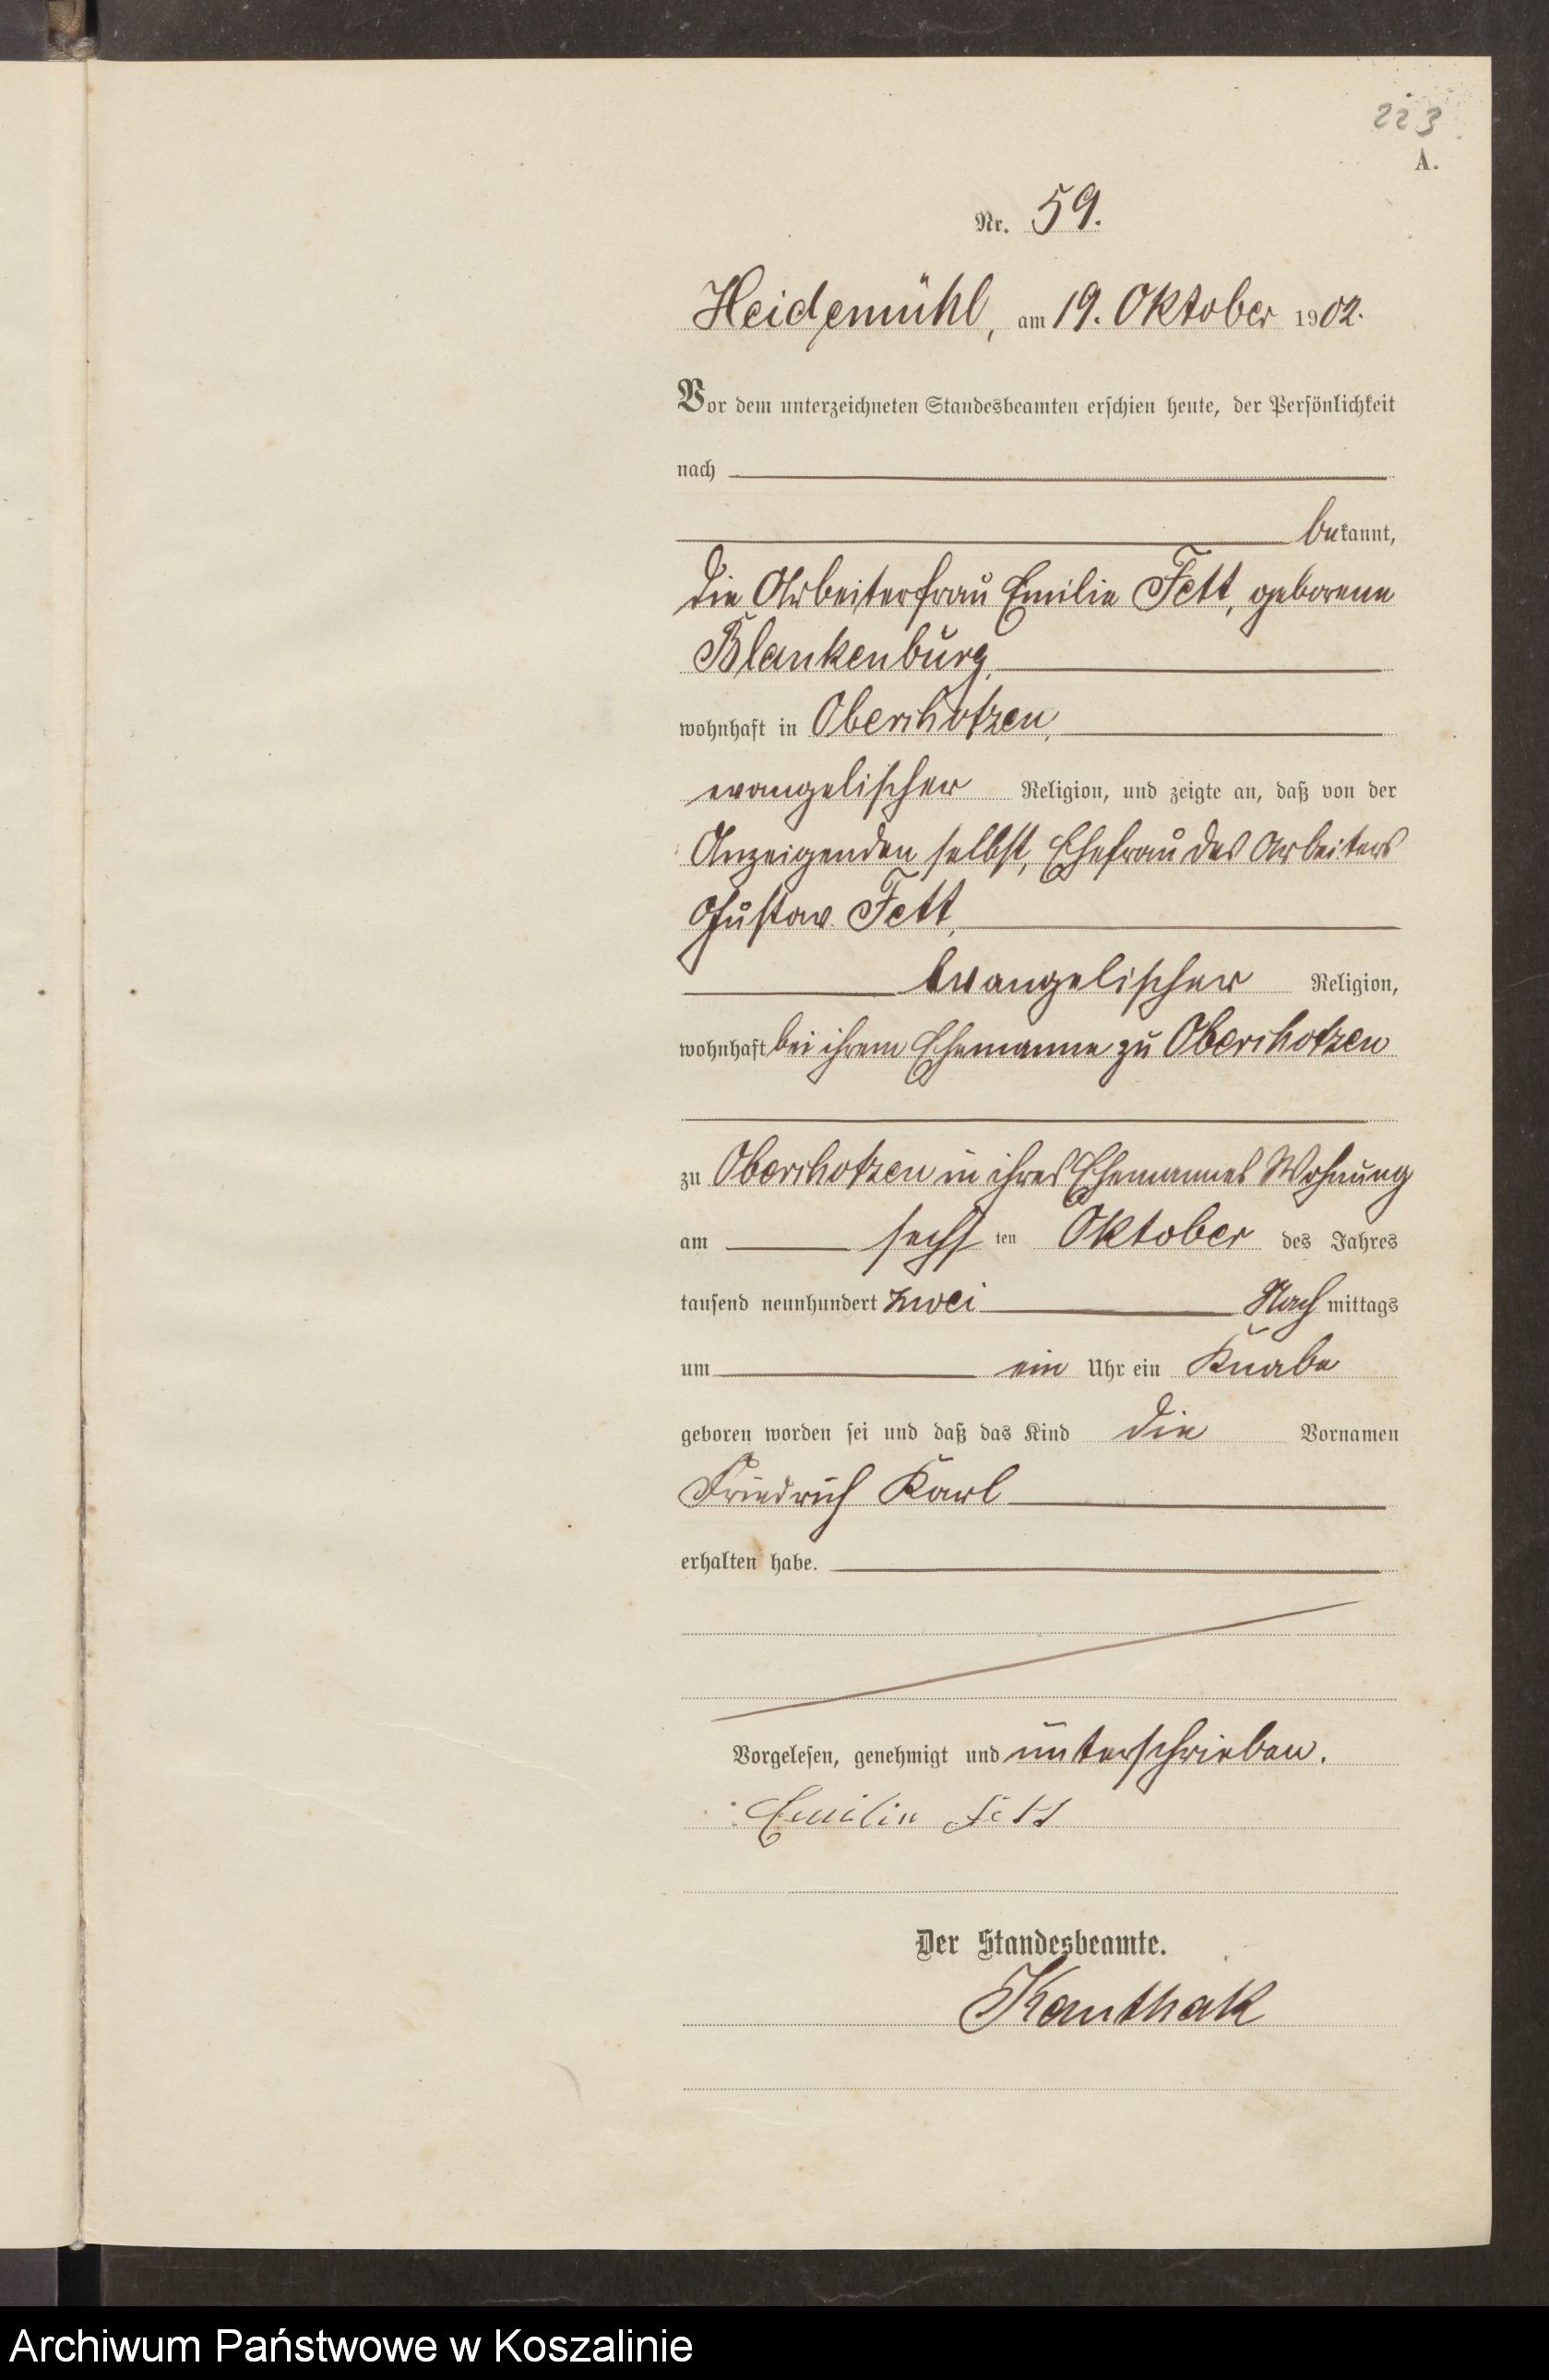 223
A.
Nr. 59.
Heidemühl, am 19. Oktober 1902.
Vor dem unterzeichneten Standesbeamten erschien heute, der Persönlichkeit
nach
bekannt,
die Arbeiterfrau Emilie Fett, geborene
Blankenburg,
wohnhaft in Oberschotzen,
evangelischer Religion, und zeigte an, daß von der
Anzeigenden selbst, Ehefrau des Arbeiters
Gustav Fett,
evangelischer Religion,
wohnhaft bei ihrem Ehemanne zu Oberschotzen
zu Oberschotzen in ihres Ehemannes Wohnung
am sechsten Oktober des Jahres
tausend neunhundert zwei Nachmittags
um ein Uhr ein Knabe
geboren worden sei und daß das Kind die Vornamen
Friedrich Karl
erhalten habe.
Vorgelesen, genehmigt und unterschrieben.
Emilie Fett
Der Standesbeamte.
Kanthak
Archiwum Państwowe w Koszalinie